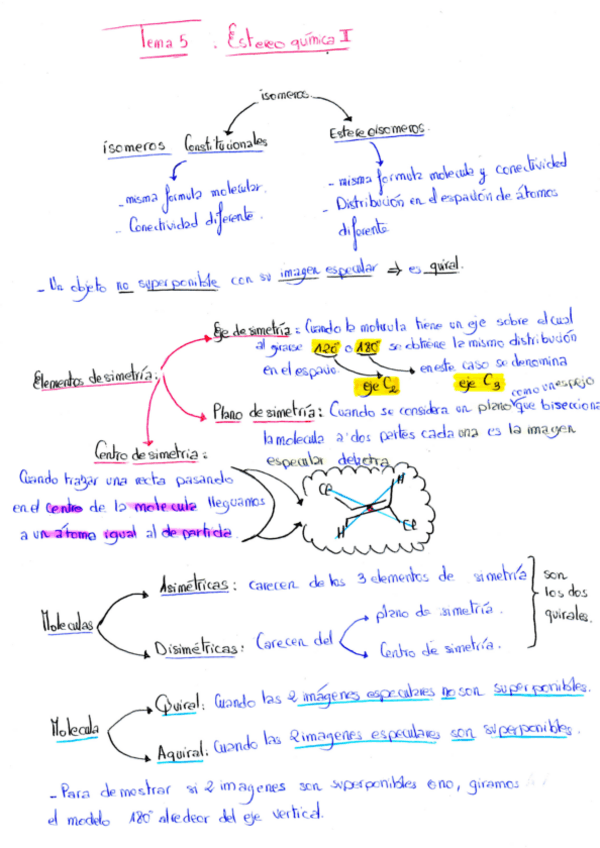 Tema 5 . Estereo química I
isomeros.
isomeros Constitucionales
Estereoisomeros.
- misma formula molecular.
- Conectividad diferente.
- misma formula molecula y conectividad
- Distribución en el espación de átomos
diferente.
- Un objeto no superponible con su imagen especular ⇒ es quiral.
Elementos de simetría:
Eje de simetría: Cuando la molecula tiene un eje sobre el cual
al girarse 120° o 180° se obtiene la misma distribución
en el espacio.
en este caso se denomina
eje C2
eje C3
como un espejo
Plano de simetría: Cuando se considera un plano que bisecciona
la molecula a dos partes cada una es la imagen
especular de la otra
Centro de simetria:
Cuando trazar una recta pasando
en el centro de la molecula lleguamos
a un átomo igual al de partida.
Cl
H
H
Cl
Moleculas
Asimétricas: carecen de los 3 elementos de simetría
Disimétricas: Carecen del
plano de simetría.
Centro de simetría.
son
los dos
quirales.
Molecula
Quiral: Cuando las 2 imágenes especulares no son superponibles.
Aquiral: Cuando las 2 imagenes especulares son superponibles.
- Para demostrar si 2 imagenes son superponibles o no, giramos
el modelo 180° alredeor del eje vertical.